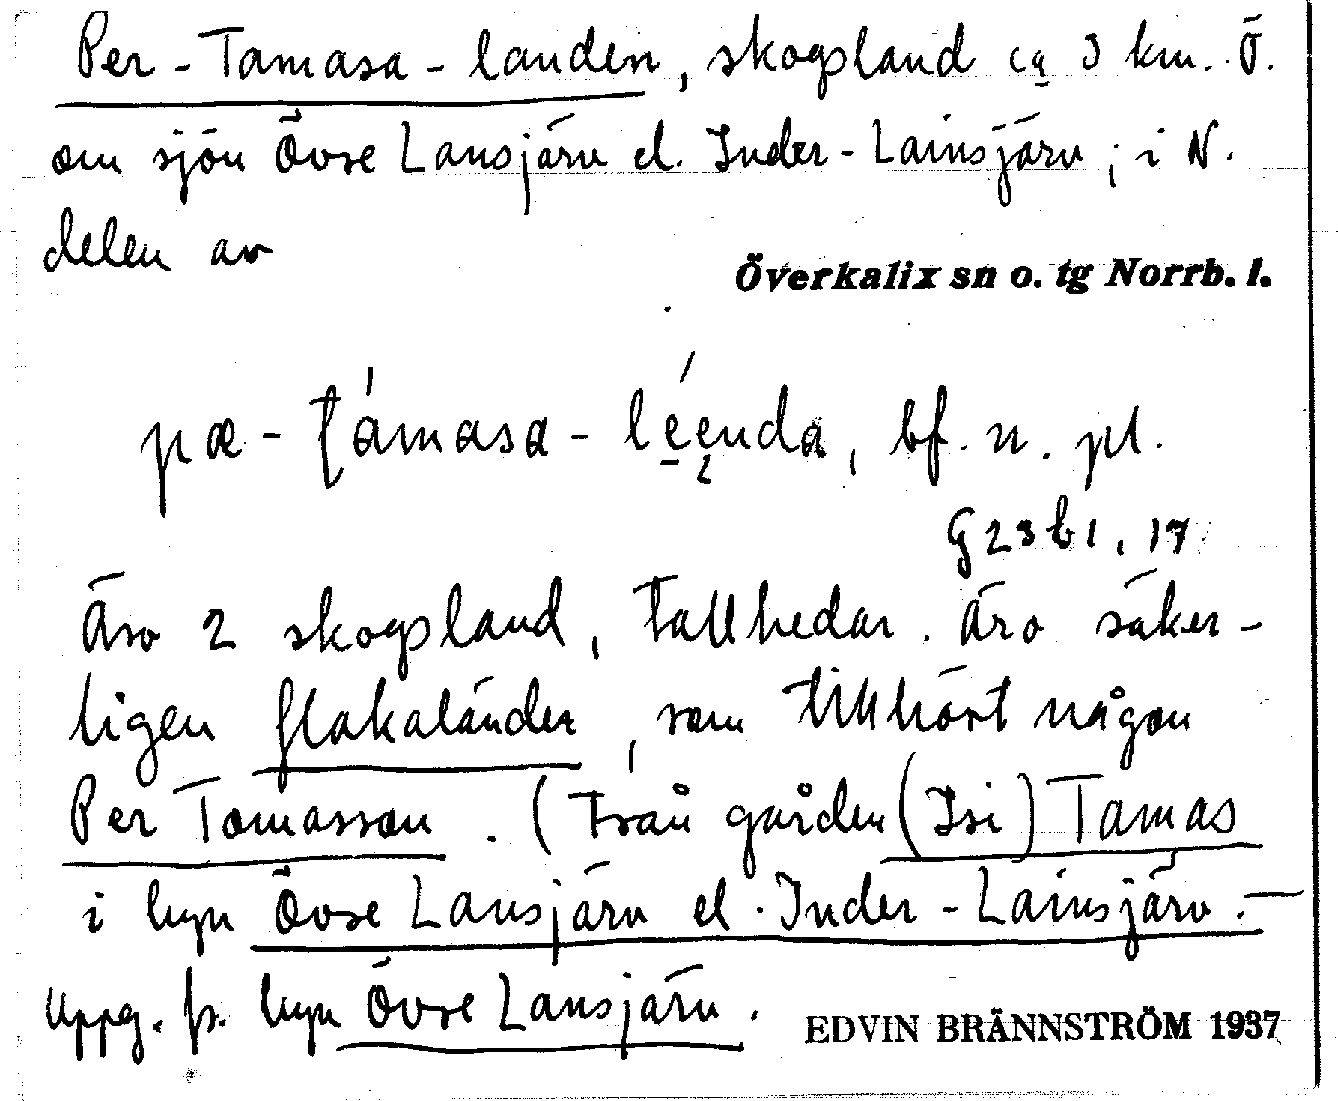 Per-Tamasa-landen, skogsland ca 3 km. Ö.
om sjön Övre Lansjärv el. Inder-Lainsjärv; i N.
delen av
Överkalix sn o. tg Norrb. l.
pæ-támasa-léenda, bf. n. pl.
G 23 b 1, 17
Äro 2 skogsland, tallhedar. Äro säker-
ligen flakaländer, som tillhört någon
Per Tomasson. (Från gården (Isi) Tamas
i byn Övre Lansjärv el. Inder-Lainsjärv. —
Uppg. fr. byn Övre Lansjärv.
EDVIN BRÄNNSTRÖM 1937